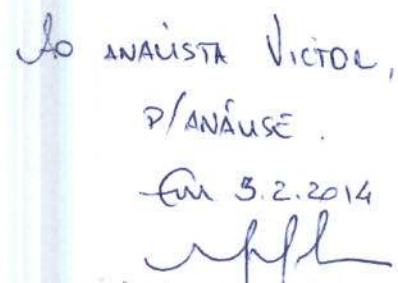 Ao ANALISTA VICTOR,
P/ANÁLISE.
Em 5.2.2014